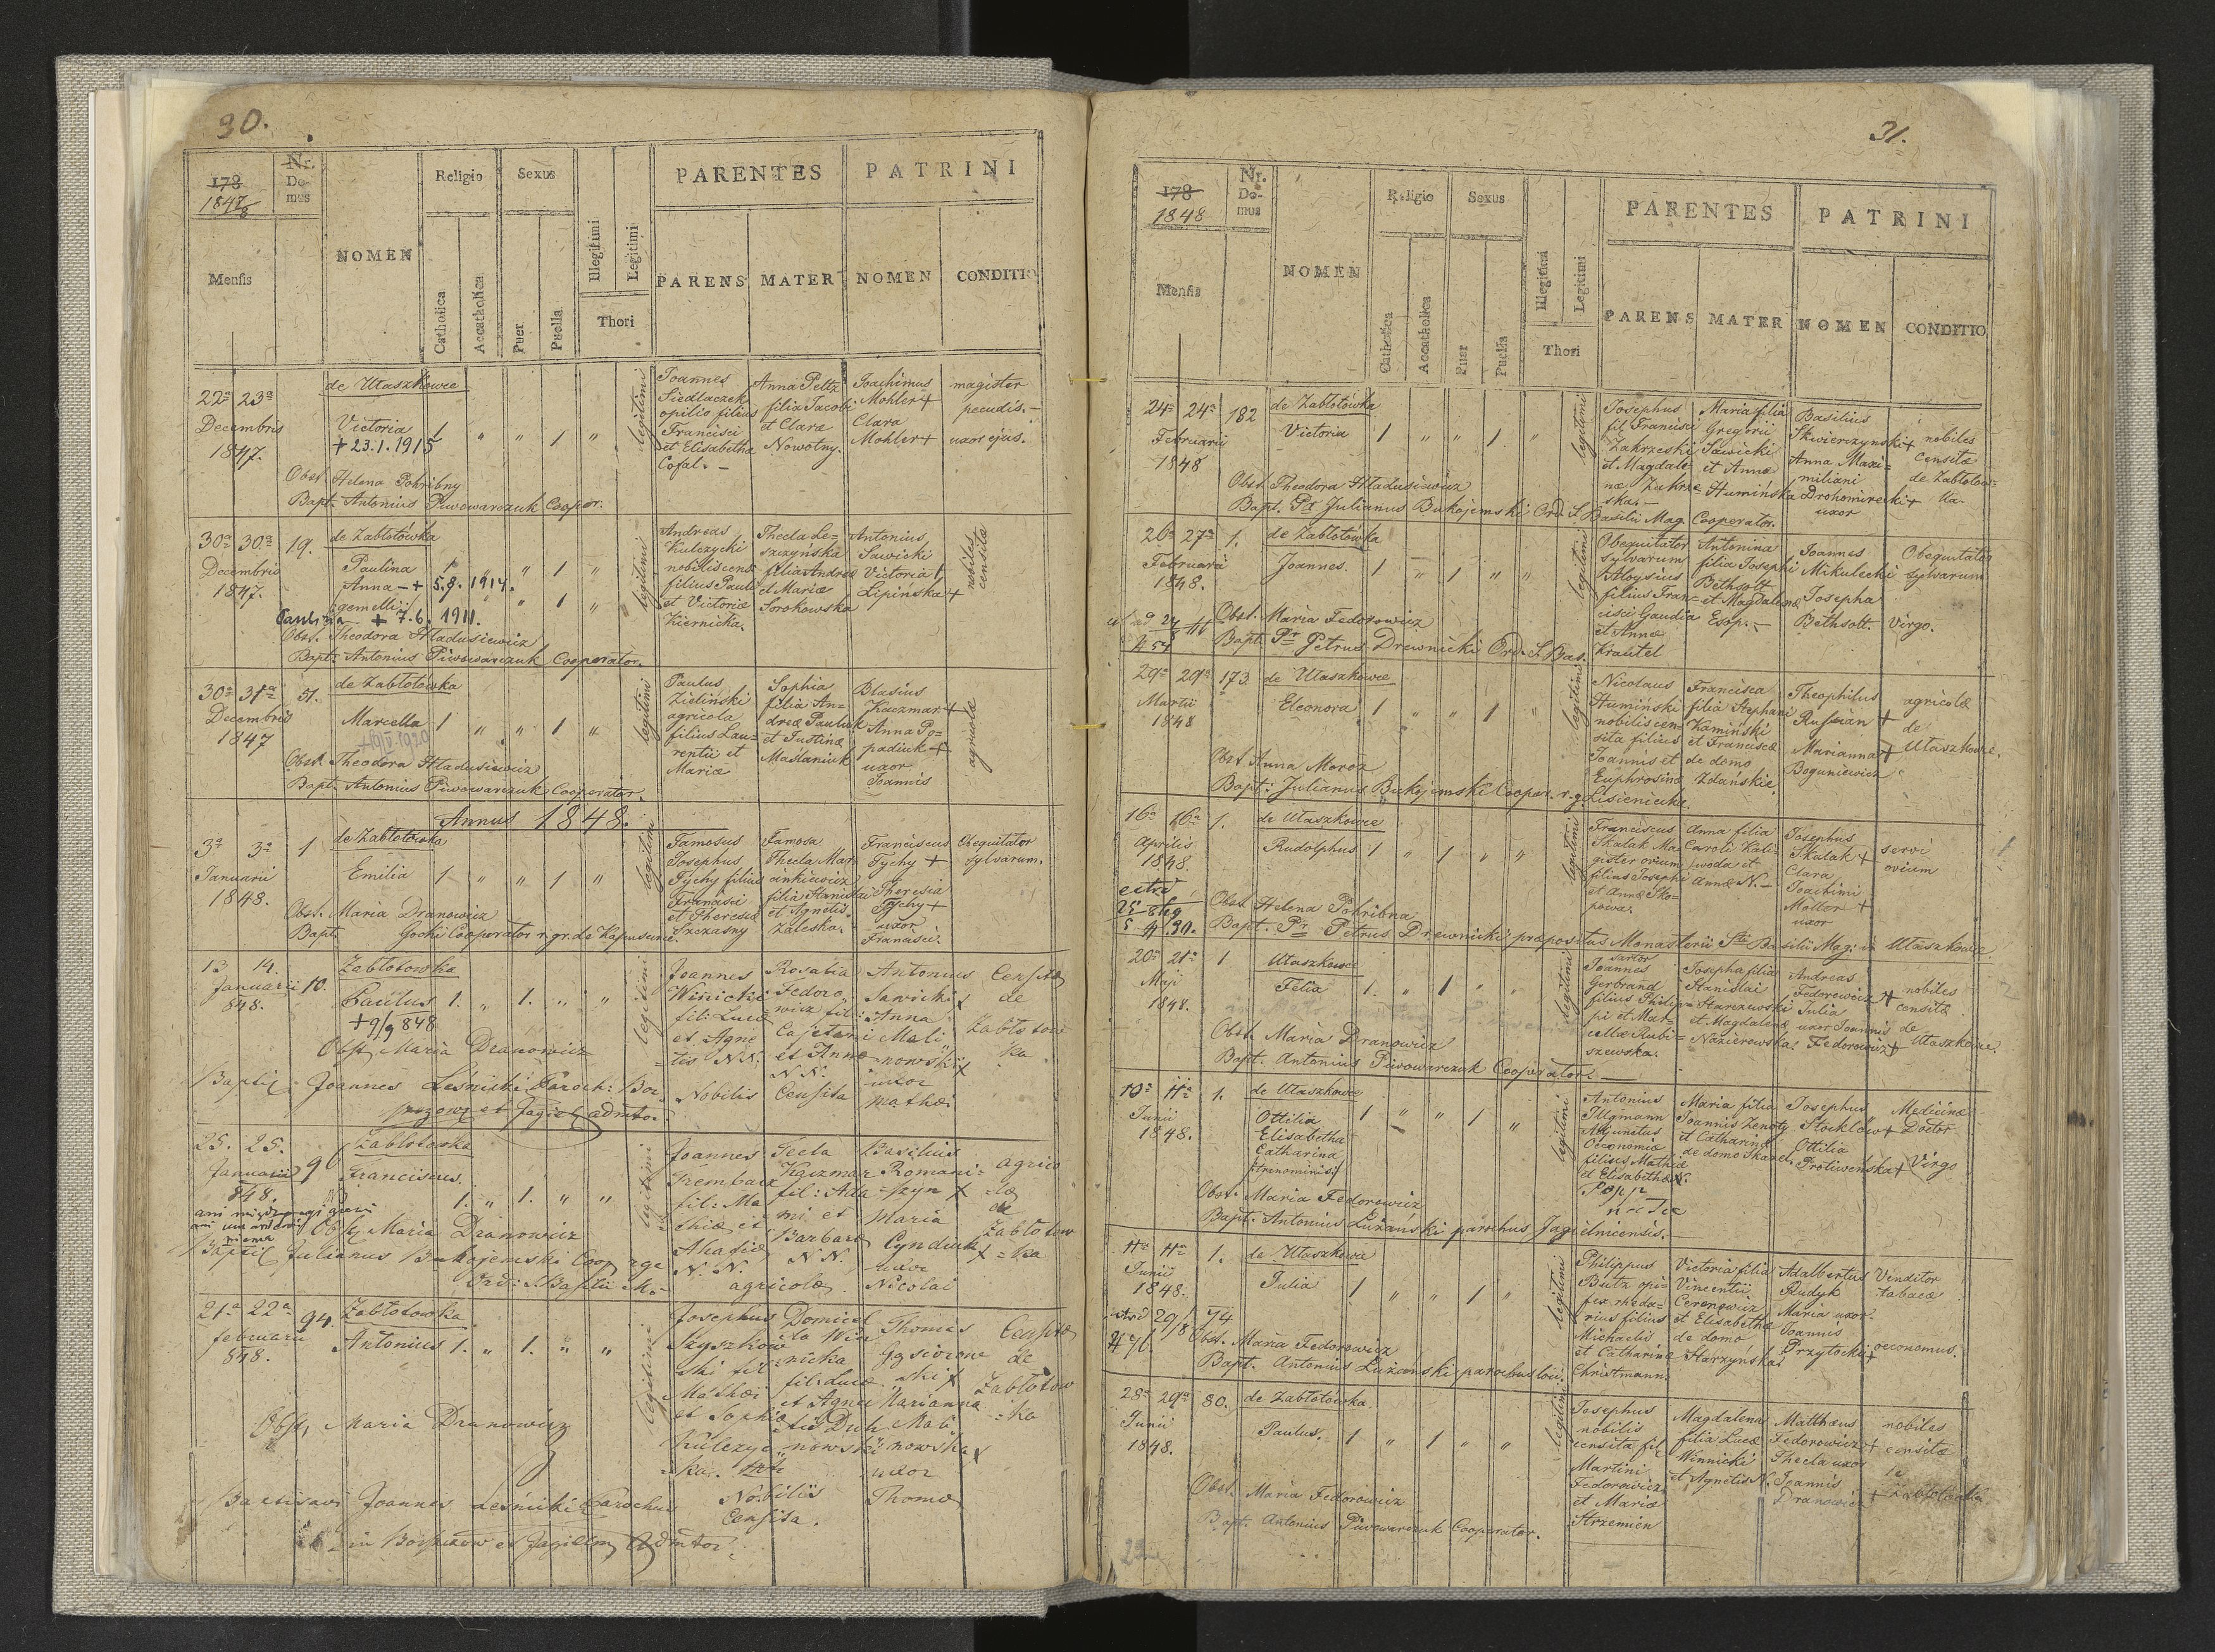 30.
178
1847/8
Nr. Domus
NOMEN
Religio
Sexus
PARENTES
PATRINI
Mensis
Catholica
Accatholica
Puer
Puella
Illegitimi
Legitimi
Thori
PARENS
MATER
NOMEN
CONDITIO
22a 23a
Decembris
1847.
de Ułaszkowce
Victoria 1 " " 1 "
+ 23.1.1915
legitimi
Joannes
Siedlaczek
opilio filius
Francisci
et Elisabetha
Cofal. –
Anna Peltz
filia Jacobi
et Clara
Nowotny.
Joachimus
Mohler +
Clara
Mohler +
magister
pecudis. –
uxor ejus.
Obst. Helena Pohribny
Bapt. Antonius Piwowarczuk Cooper.
30a 30a 19.
Decembris
1847.
de Zabłotówka
Paulina 1 " " 1 "
Anna – + 5.8.1914.
gemelli " " 1 "
Paulina + 7.6.1911.
legitimi
Andreas
Kulczycki
nobilis cens
filius Pauli
et Victoriæ
Kiernicka.
Thecla Le=
szczyńska
filia Andreæ
et Mariæ
Sorokowska
Antonius
Sawicki
Victoria
Lipińska +
nobiles
censitæ
Obst. Theodora Hladusiewicz
Bapt. Antonius Piwowarczuk Cooperator.
30a 31a 51.
Decembris
1847
de Zabłotówka
Marcella 1 " " 1 "
legitimi
Paulus
Zieliński
agricola
filius Lau=
rentii et
Mariæ
Sophia
filia An=
dreæ Pauluk
et Justinæ
Maślaniuk
Blasius
Kaczmar +
Anna Po=
padiuk +
uxor
Joannis
agricolæ
Obst. Theodora Hladusiewicz
Bapt. Antonius Piwowarczuk Cooperator.
Annus 1848.
3a 3a 1
Januarii
1848.
de Zabłotówka
Emilia 1 " " 1 "
legitimi
Famosus
Josephus
Tychy filius
Francisci
et Theresiæ
Szczasny
Famosa
Thecla Mar
cinkiewicz
filia Stanislai
et Agnetis
Zaleska.
Franciscus
Tychy +
Theresia
Tychy +
uxor
Francisci.
Obequitator
sylvarum.
Obst. Maria Dranowicz
Bapt. Gocki Cooperator r. gr. de Kapuscince.
13 14.
Januarii 10.
848.
Zabłotowka
Paulus 1. " 1. " "
+ 9/9 848
legitimi
Joannes
Winicki
fil: Lucæ
et Agne
tis N.N.
Rosalia
Fedoro
wicz fil:
Cajetani
et Annæ
N N.
Antonius
Sawicki +
Anna
Mali
nowski +
uxor
Mathæi
Censitæ
de
Zabłotow
ka
Nobilis Censita
Obst, Maria Dranowicz
Baptis. Joannes Leśnicki Paroch: Bor
szczow et Jagiel admtor
25. 25.
Januarii 96
848.
Zabłotowka
Franciscus.
1. " 1. " "
legitimi
Joannes
Trembacz
fil: Ma
thiæ et
Ahafiæ
N. N.
Tecla
Kaczmar
fil: Ada
mi et
Barbaræ
N N.
Basilius
Romani=
szyn +
Maria
Cyndiuk +
uxor
Nicolai
agrico
læ
de
Zabłotow
=ka
agricolæ.
Obst, Maria Dranowicz
Baptis. Julianus Bukojemski Coop
Ord: S. Basilii M.
21a 22a 94.
februarii
848.
Zabłotowka
Antonius 1. " 1. " "
legitimi
Josephus
Szyszkow
ski fil
Mathæi
et Sophiæ
Kulczyc
ka.
Domicel
la Wi
nicka
fil: Lucæ
et Agne
tis Duh
nowski
Thomas
Marianna
Mali
nowska +
uxor
Thomæ
Censitæ
de
Zabłotow
=ka
Nobilis
Censita.
Obst, Maria Dranowicz
Baptisavi Joannes Leśnicki Parochus
in Borszczow et Jagielln Admtor.
31.
178
1848
Nr. Domus
NOMEN
Religio
Sexus
PARENTES
PATRINI
Mensis
Catholica
Accatholica
Puer
Puella
Illegitimi
Legitimi
Thori
PARENS
MATER
NOMEN
CONDITIO
24a 24a 182
Februarii
1848
de Zabłotówka
Victoria 1 " " 1. "
legitimi
Josephus
fil Francisci
Zakrzeski
et Magdale=
næ Zakrze
ska. –
Maria filia
Gregorii
Sawicki
et Annæ
Humińska
Basilius
Skwierczynski +
Anna Maxi=
miliani
Drohomirecki +
uxor
nobiles
Censitæ
de Zabłotow=
ka.
Obst. Theodora Hladusiewicz
Bapt. Pr Julianus Bukojemski Ord. S. Basilii Mag. Cooperator.
26a 27a 1.
Februarii
1848.
de Zabłotówka
Joannes. 1 " 1 " "
legitimi
Obequitator
sylvarum
Aloysius
filius Fran=
cisci Gaudia
et Annæ
Krautel
Antonina
filia Josephi
Bethsolt
et Magdalenæ
Esop. –
Joannes
Mikulecki
Josepha
Bethsolt.
Obequitator
sylvarum
Virgo.
Obst. Maria Fedorowicz
Bapt. Pr Petrus Drewnicki Ord. S. Bas.
29a 29a 173.
Martii
1848
de Ułaszkowce
Eleonora 1 " " 1 "
legitimi
Nicolaus
Humiński
nobilis cen=
sita filius
Joannis et
Euphrosinæ
Francisca
filia Stephani
Kamiński
et Franciscæ
de domo
Zdańskie.
Theophilus
Rusman +
Marianna +
Boguniewicz
agricolæ
de
Ułaszkowce.
Obst Anna Moroz
Bapt: Julianus Bukojemski Cooper. r. g. Lisieniecke.
16a 16a 1.
Aprilis
1848.
de Ułaszkowce
Rudolphus 1 " 1 " "
legitimi
Franciscus
Skalak Ma=
gister ovium
filius Josephi
et Annæ Sko=
powa.
Anna filia
Caroli Kali=
woda et
Annæ N. –
Josephus
Skalak +
Clara
Joachimi
Moller +
uxor
servi
ovium
Obst Helena Pohribna
Bapt. Pr Petrus Drewnicki præpositus Monasterii Sti Basilii Mag: in Ułaszkowce.
20a 21a 1
Maji
1848.
Ułaszkowce
Felix 1. " 1 " "
legitimi
sartor
Joannes
Gerbrand
filius Philip=
pi et Mar=
cellæ Rubi=
szewska.
Josepha filia
Stanislai
Starzewski
et Magdalenæ
Nazierowska.
Andreas
Fedorowicz +
Julia
uxor Joannis
Fedorowicz +
nobiles
censitæ
de
Ułaszkowce.
Obst. Maria Dranowicz
Bapt. Antonius Piwowarczuk Cooperator. –
10a 11a 1.
Junii
1848.
de Ułaszkowce
Ottilia 1 " " 1 "
Elisabetha
Catharina
trenominis
legitimi
Antonius
Illgmann
Adjunctus
Oeconomiæ
filius Mathiæ
et Elisabethæ N.
Popp
Maria filia
Joannis Zenoty
et Catharinæ
de domo Skarel
Josephus
Stocklöw +
Ottilia
Protiwenska +
Medicinæ
Doctor
Virgo
Obst. Maria Fedorowicz
Bapt: Antonius Lużański parochus Jagielnicensis. –
11a 11a 1.
Junii
1848.
de Ułaszkowce
Julia 1 " " 1 "
legitimi
Philippus
Butz opi=
fex rheda=
rius filius
Michaelis
et Catharinæ
Christmann.
Victoria filia
Vincentii
Cerenowicz
et Elisabethæ
de domo
Starzyńska
Adalbertus
Rudyk
Maria uxor
Joannis
Przytocki +
Venditor
tabacæ
oeconomus.
Obst. Maria Fedorowicz
Bapt. Antonius Lużański parochus loci.
28a 29a 80.
Junii
1848.
de Zabłotówka
Paulus. 1 " 1 " "
legitimi
Josephus
nobilis
censita fil
Martini
Fedorowicz
et Mariæ
Strzemien
Magdalena
filia Lucæ
Winnicki
et Agnetis N.
Matthæus
Fedorowicz +
Thecla uxor
Joannis
Dranowicz +
nobiles
censitæ
Zabłotówka
Obst. Maria Fedorowicz
Bapt. Antonius Piwowarczuk Cooperator.